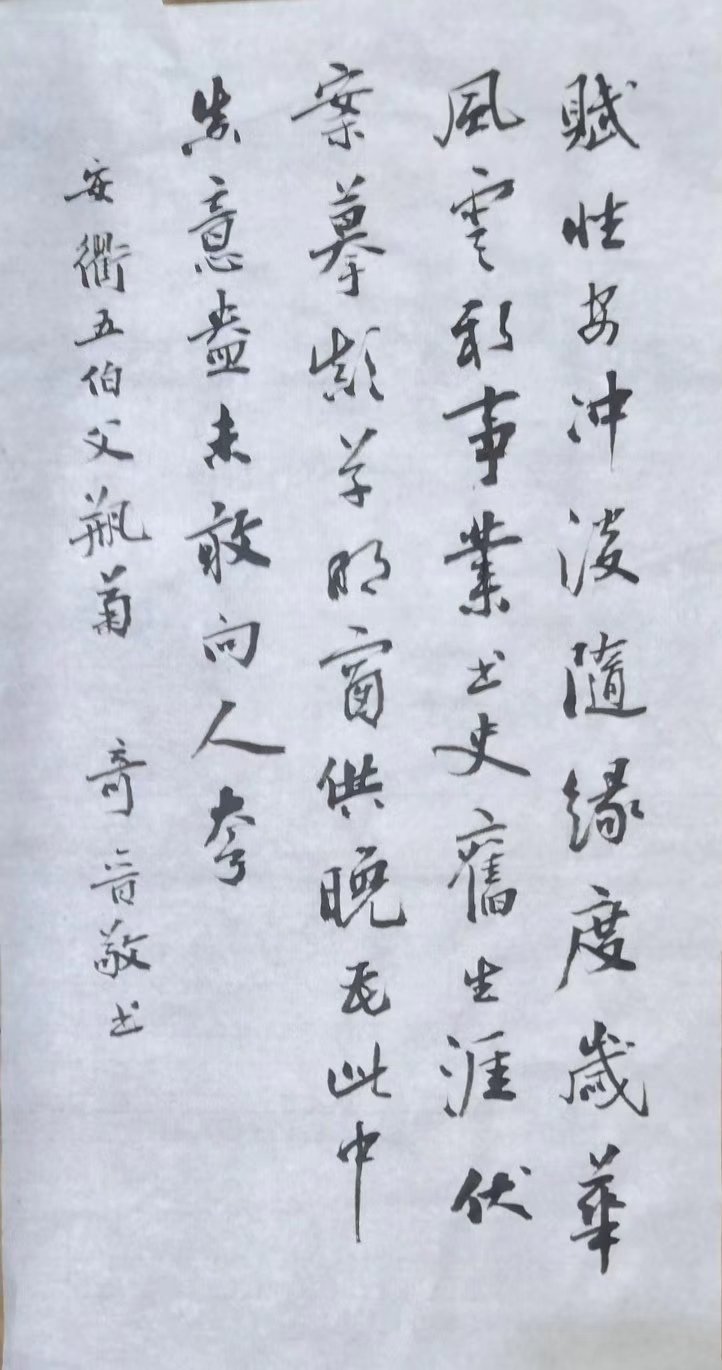 賦性安沖淡隨緣度歲華
風雲新事業书史舊生涯伏
案摹顛草明窗供晚花此中
真意盎未敢向人夸
安衢五伯父瓶菊 奇音敬书